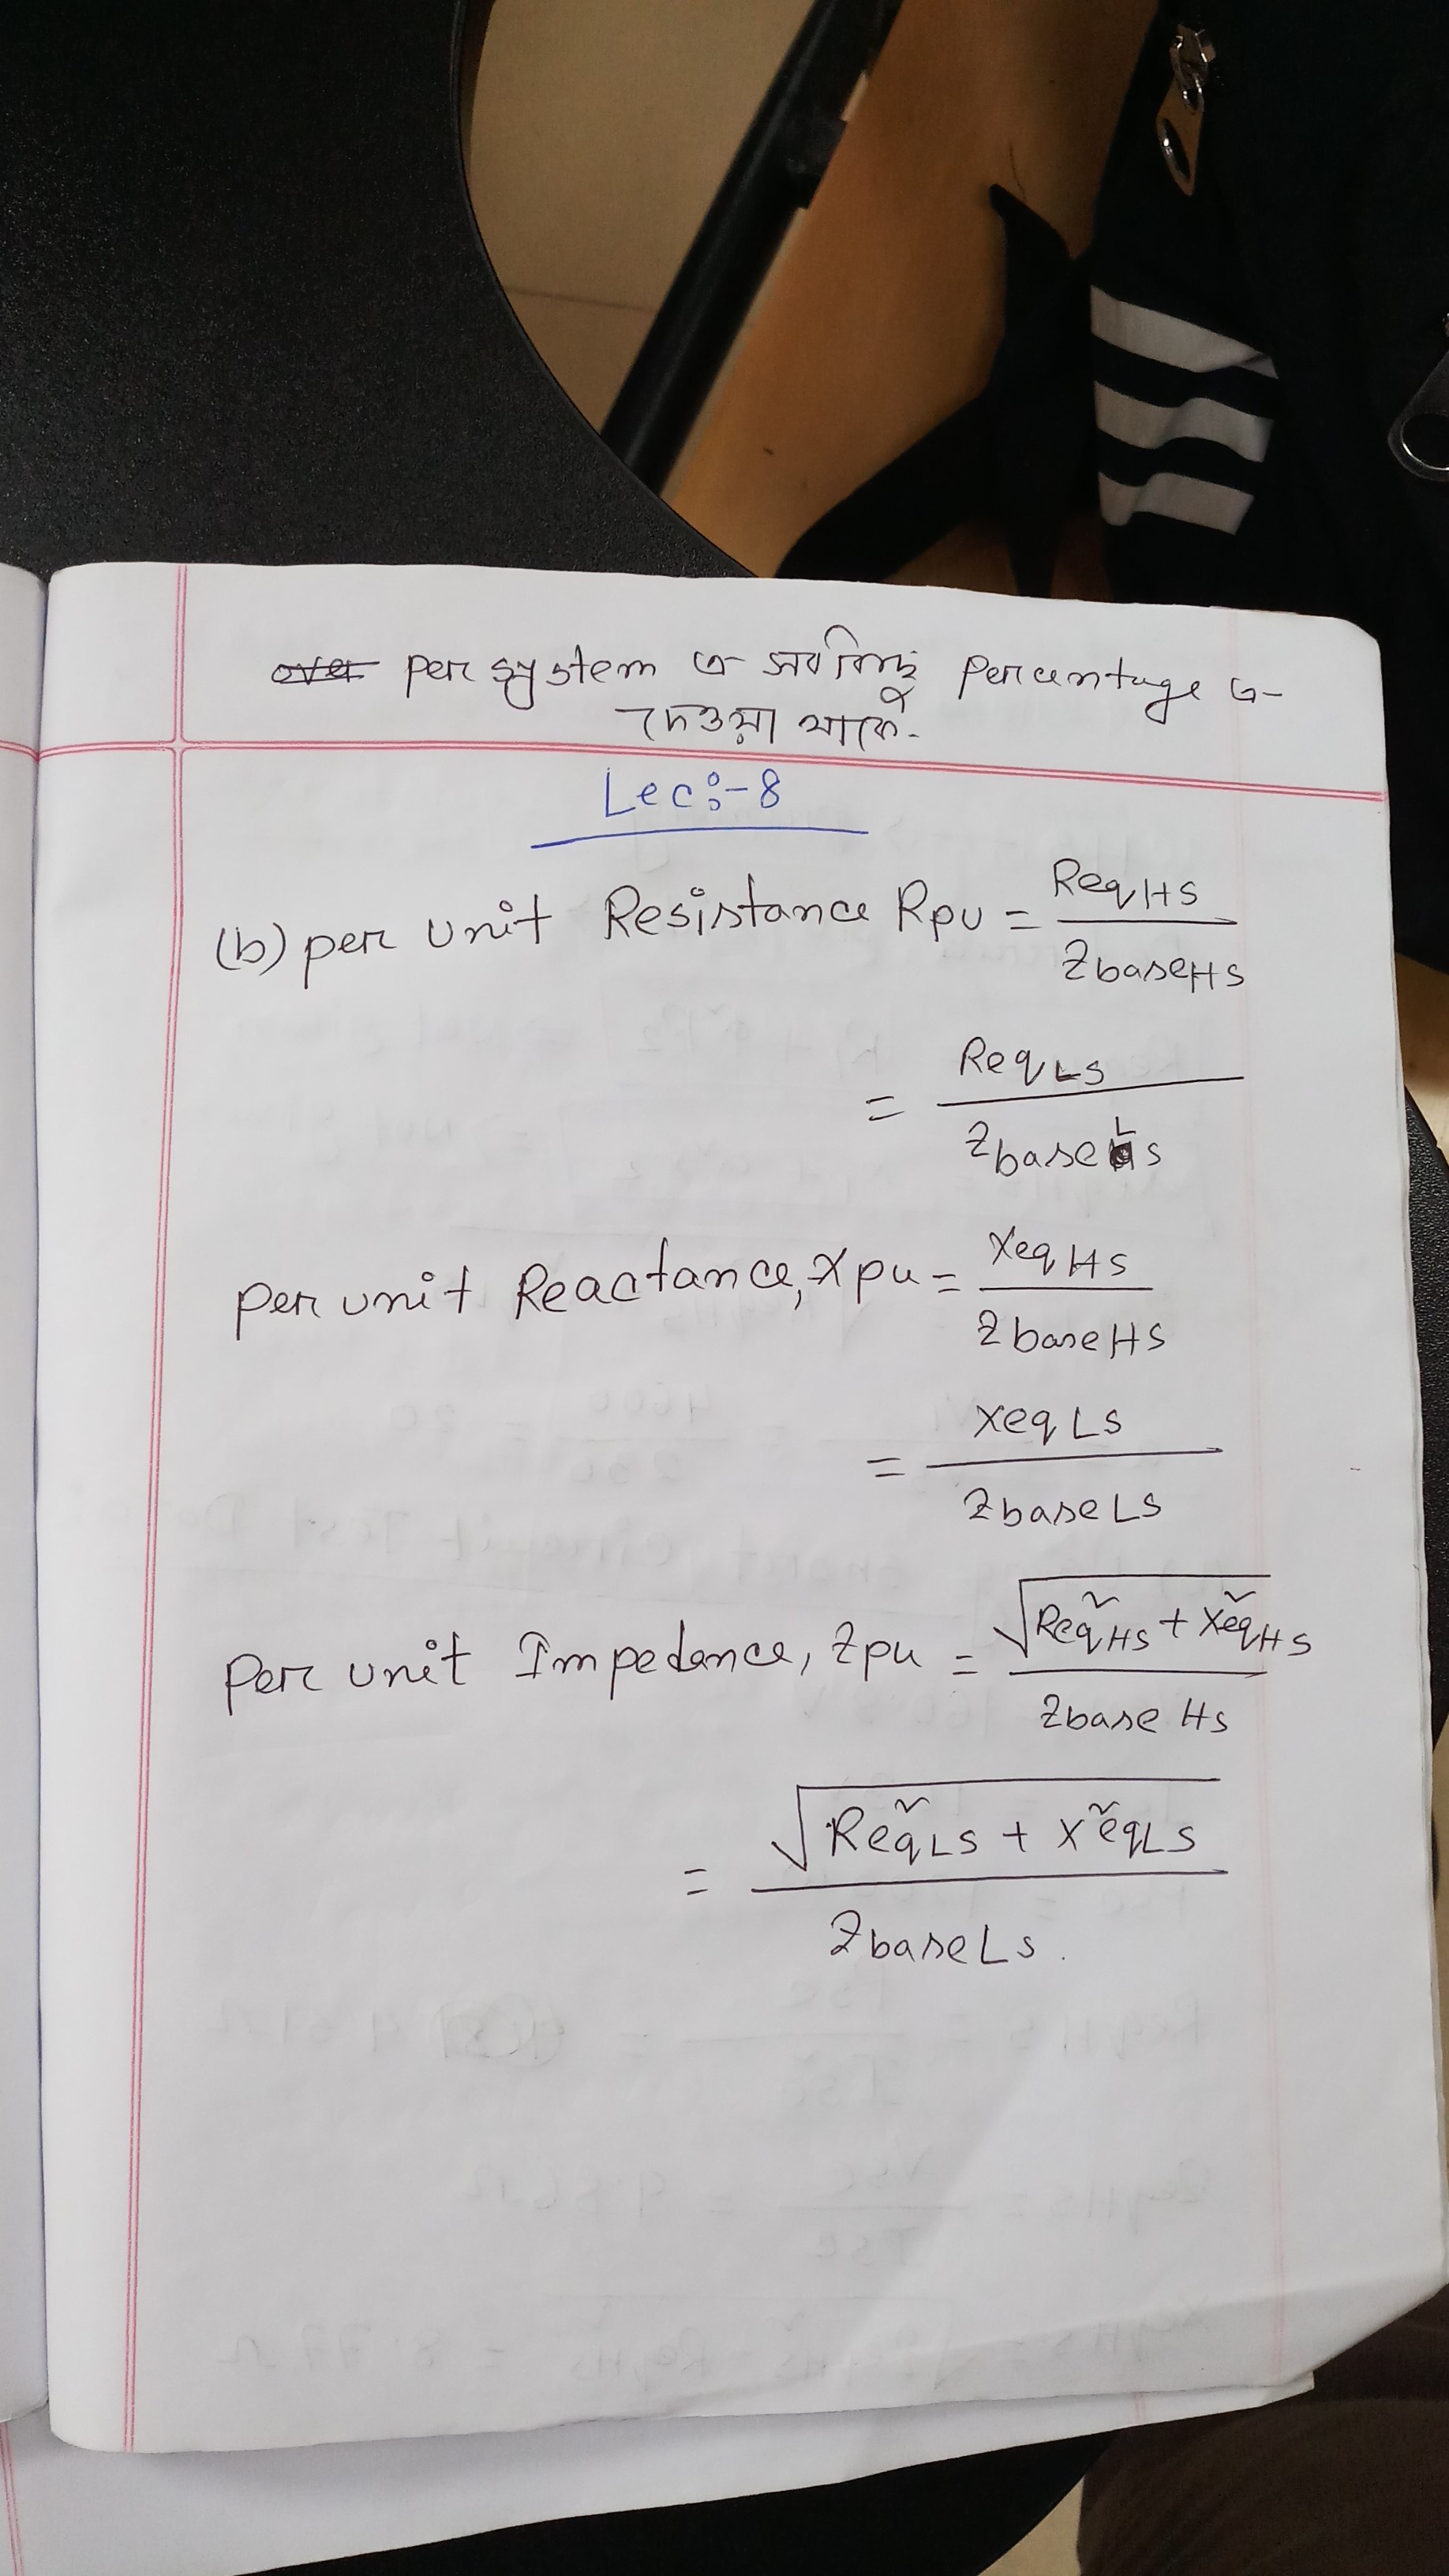 per system এ সবকিছু percentage এ
দেওয়া থাকে.
Lec:-8
(b) per unit Resistance Rpu = ReqHS / ZbaseHS
= ReqLS / ZbaseLS
per unit Reactance, Xpu = XeqHS / ZbaseHS
= XeqLS / ZbaseLS
per unit Impedance, Zpu = √(Req²HS + Xeq²HS) / Zbase HS
= √(Req²LS + X²eqLS) / ZbaseLS.